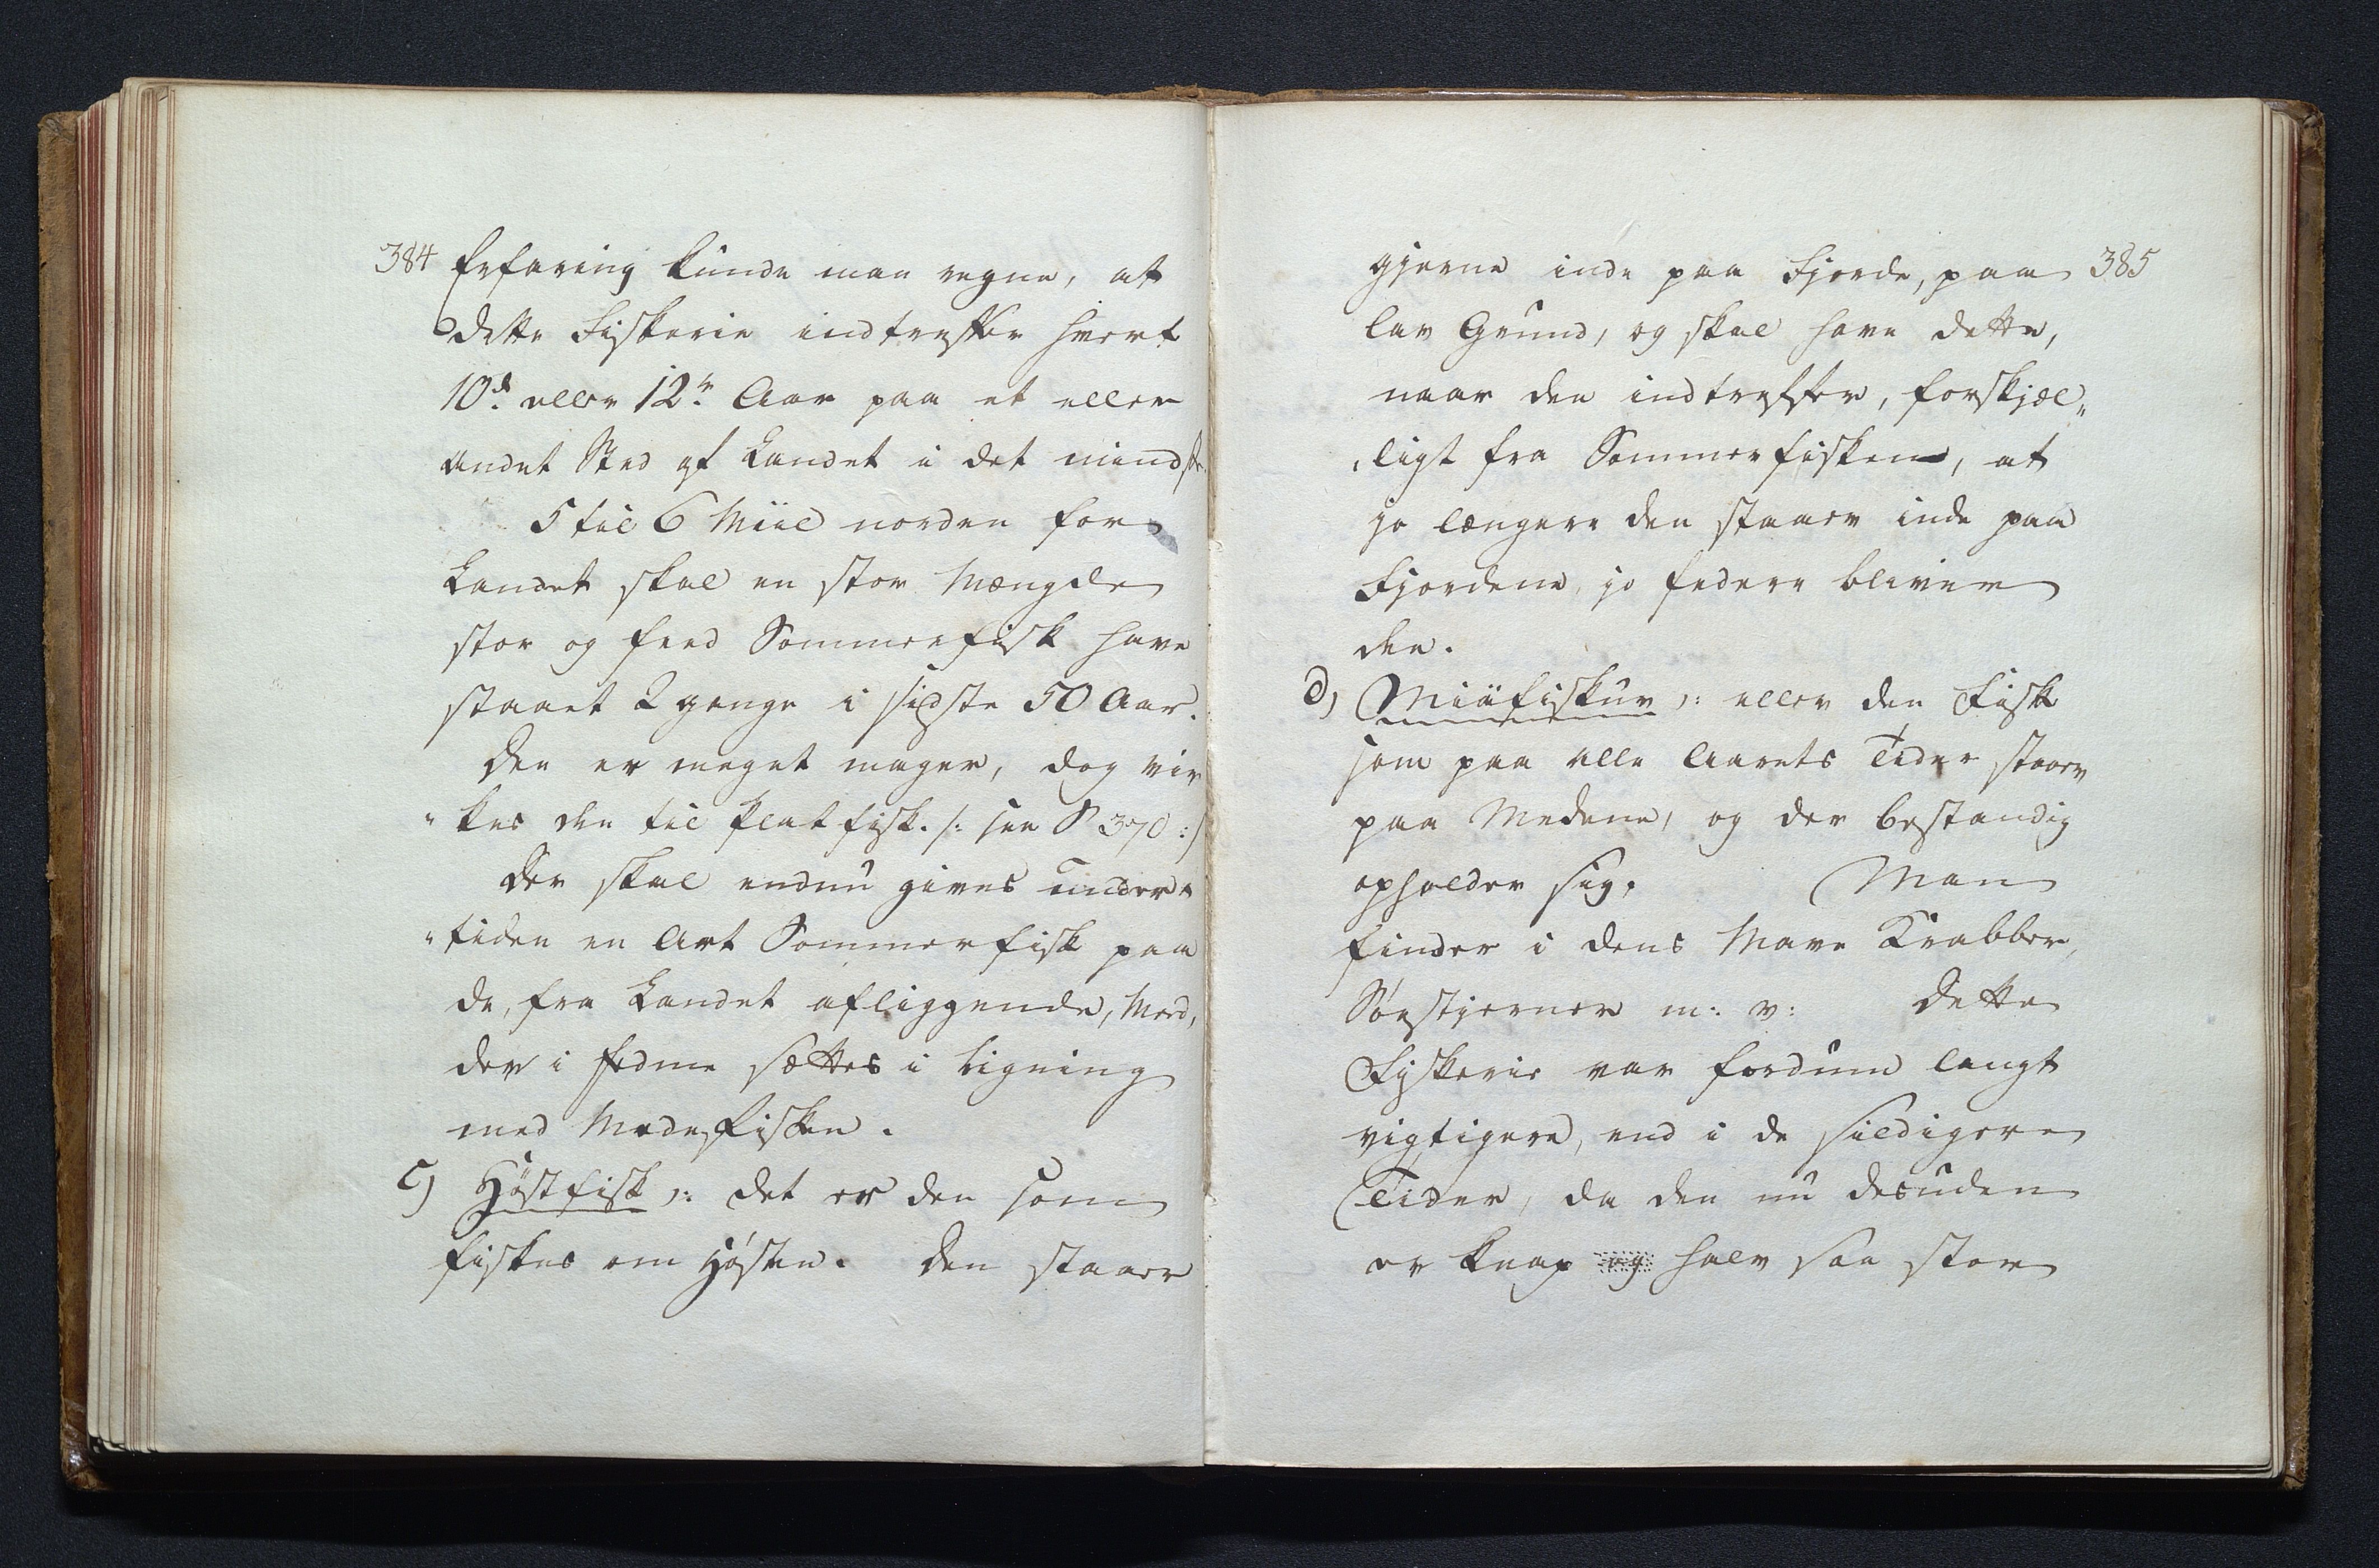 384
Erfaring kunde man regne, at
dette Fiskerie indtreffer hvert
10d. eller 12te Aar paa et eller
andet Sted af Landet i det mindste.
5 til 6 Miil norden for
Landet skal en stor Mængde
stor og feed Sommerfisk have
staaet 2 gange i sidste 50 Aar.
Den er meget mager, dog vir
" kes den til Platfisk. /: see S 370 :/
Der skal endnu gives under "
" tiden en Art Sommerfisk paa
de, fra Landet afliggende, Med,
der i fedme sættes i Ligning
med Medefisken.
c) Høstfisk ɔ: det er den som
fiskes om Høsten. Den staaer
385
gjerne inde paa Fjorde, paa
lav Grund, og skal have dette,
naar den indtreffer, forskjæl„
„ligt fra Sommerfisken, at
jo længere den staaer inde paa
Fjordene, jo federe bliver
den.
d) Miüfiskur ɔ: eller den Fisk
som paa alle Aarets Tider staaer
paa Medene, og der bestandig
opholder sig. Man
finder i dens Mave Krabber,
Søestjerner m: v: Dette
Fiskerie var fordum langt
vigtigere, end i de sildigere
Tider, da den nu desuden
er knap og halv saa stor